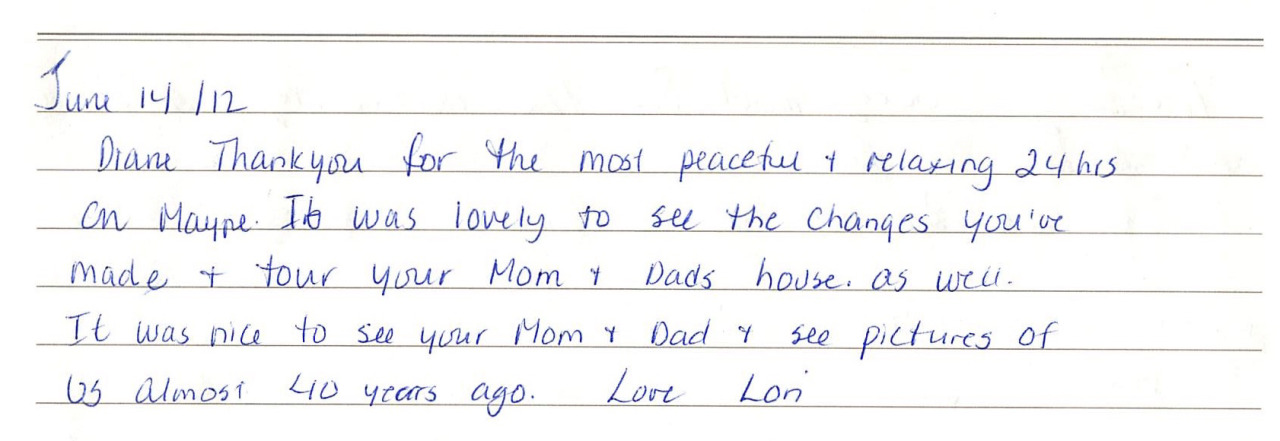 June 14/12
Diane Thankyou for the most peaceful + relaxing 24 hrs
on Mayne. It was lovely to see the changes you've
made + tour your Mom + Dads house. as well.
It was nice to see your Mom + Dad + see pictures of
us almost 40 years ago. Love Lori